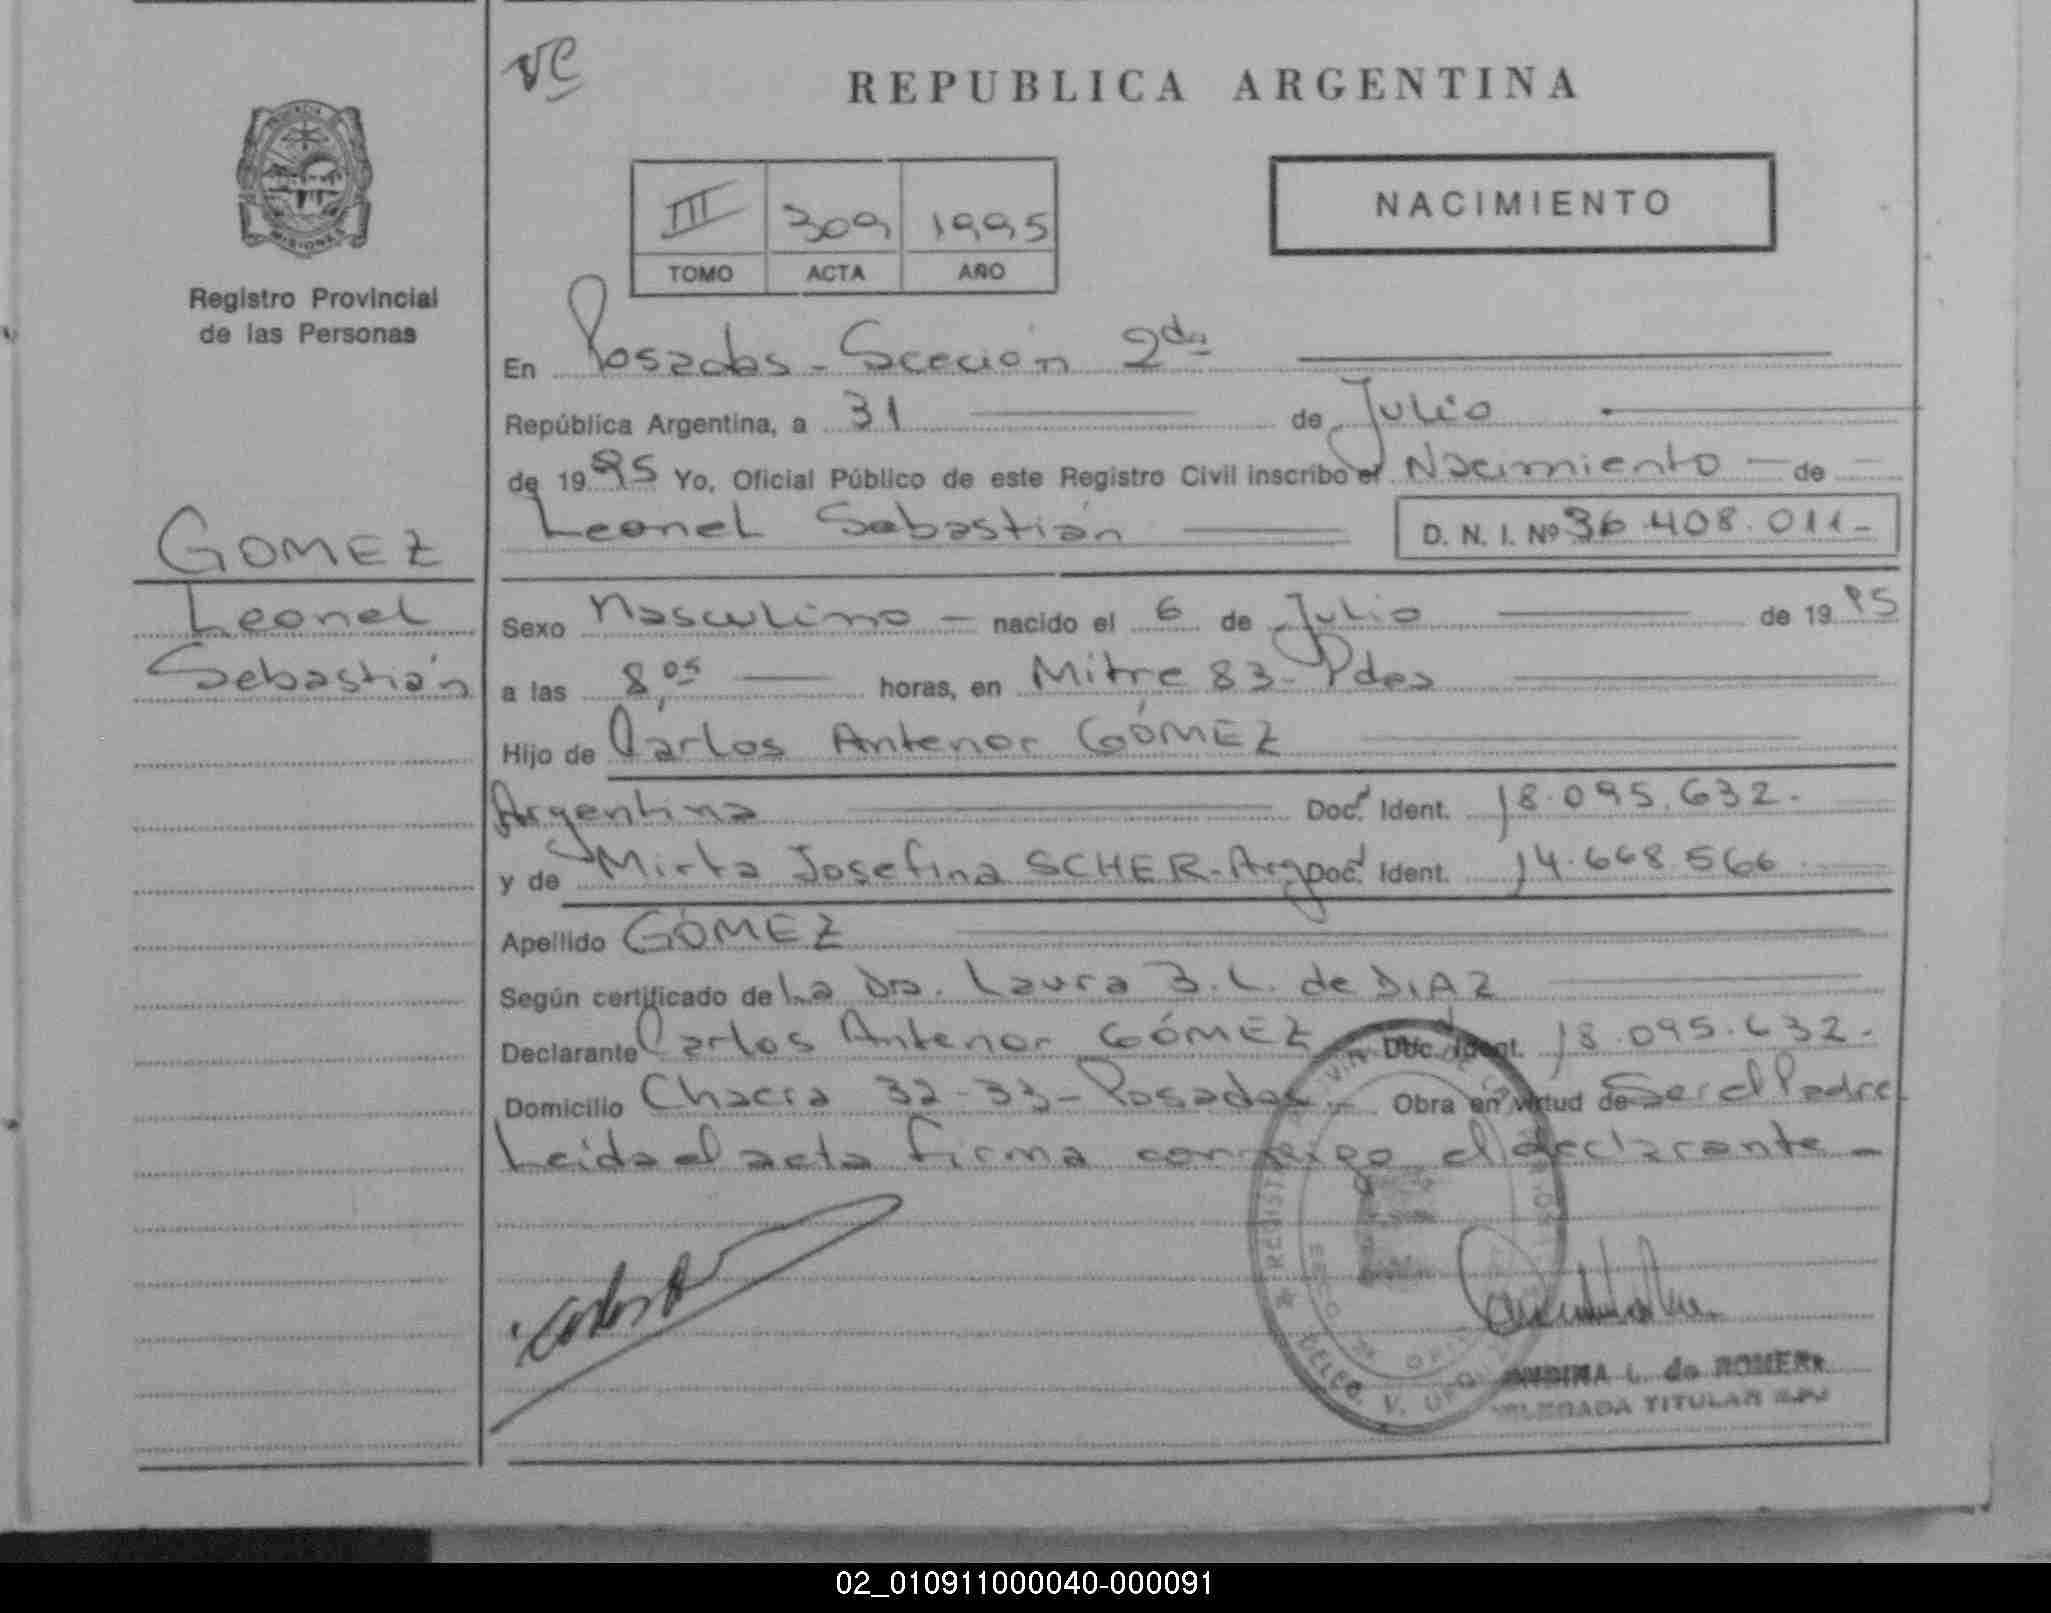 VC
REPUBLICA ARGENTINA
PROVINCIA
MISIONES
Registro Provincial
de las Personas
III 309 1995
TOMO ACTA AÑO
NACIMIENTO
En Posadas - Sección 2da
República Argentina, a 31 de Julio
de 1995 Yo, Oficial Público de este Registro Civil inscribo el Nacimiento de
Leonel Sebastián D. N. I. Nº 36.408.011-
GOMEZ
Leonel
Sebastián
Sexo Masculino - nacido el 6 de Julio de 1995
a las 8,05 horas, en Mitre 83 - Pdas
Hijo de Carlos Antenor GÓMEZ
Argentina Doc. Ident. 18.095.632.
y de Mirta Josefina SCHER - Arg Doc. Ident. 14.668.566
Apellido GÓMEZ
Según certificado de La Dra. Laura B. L. de DIAZ
Declarante Carlos Antenor GÓMEZ Doc. Ident. 18.095.632.
Domicilio Chacra 32-33 - Posadas - Obra en virtud de Ser el Padre
Leida el acta firma conmigo el declarante -
L. de ROMERO
DELEGADA TITULAR
02_010911000040-000091